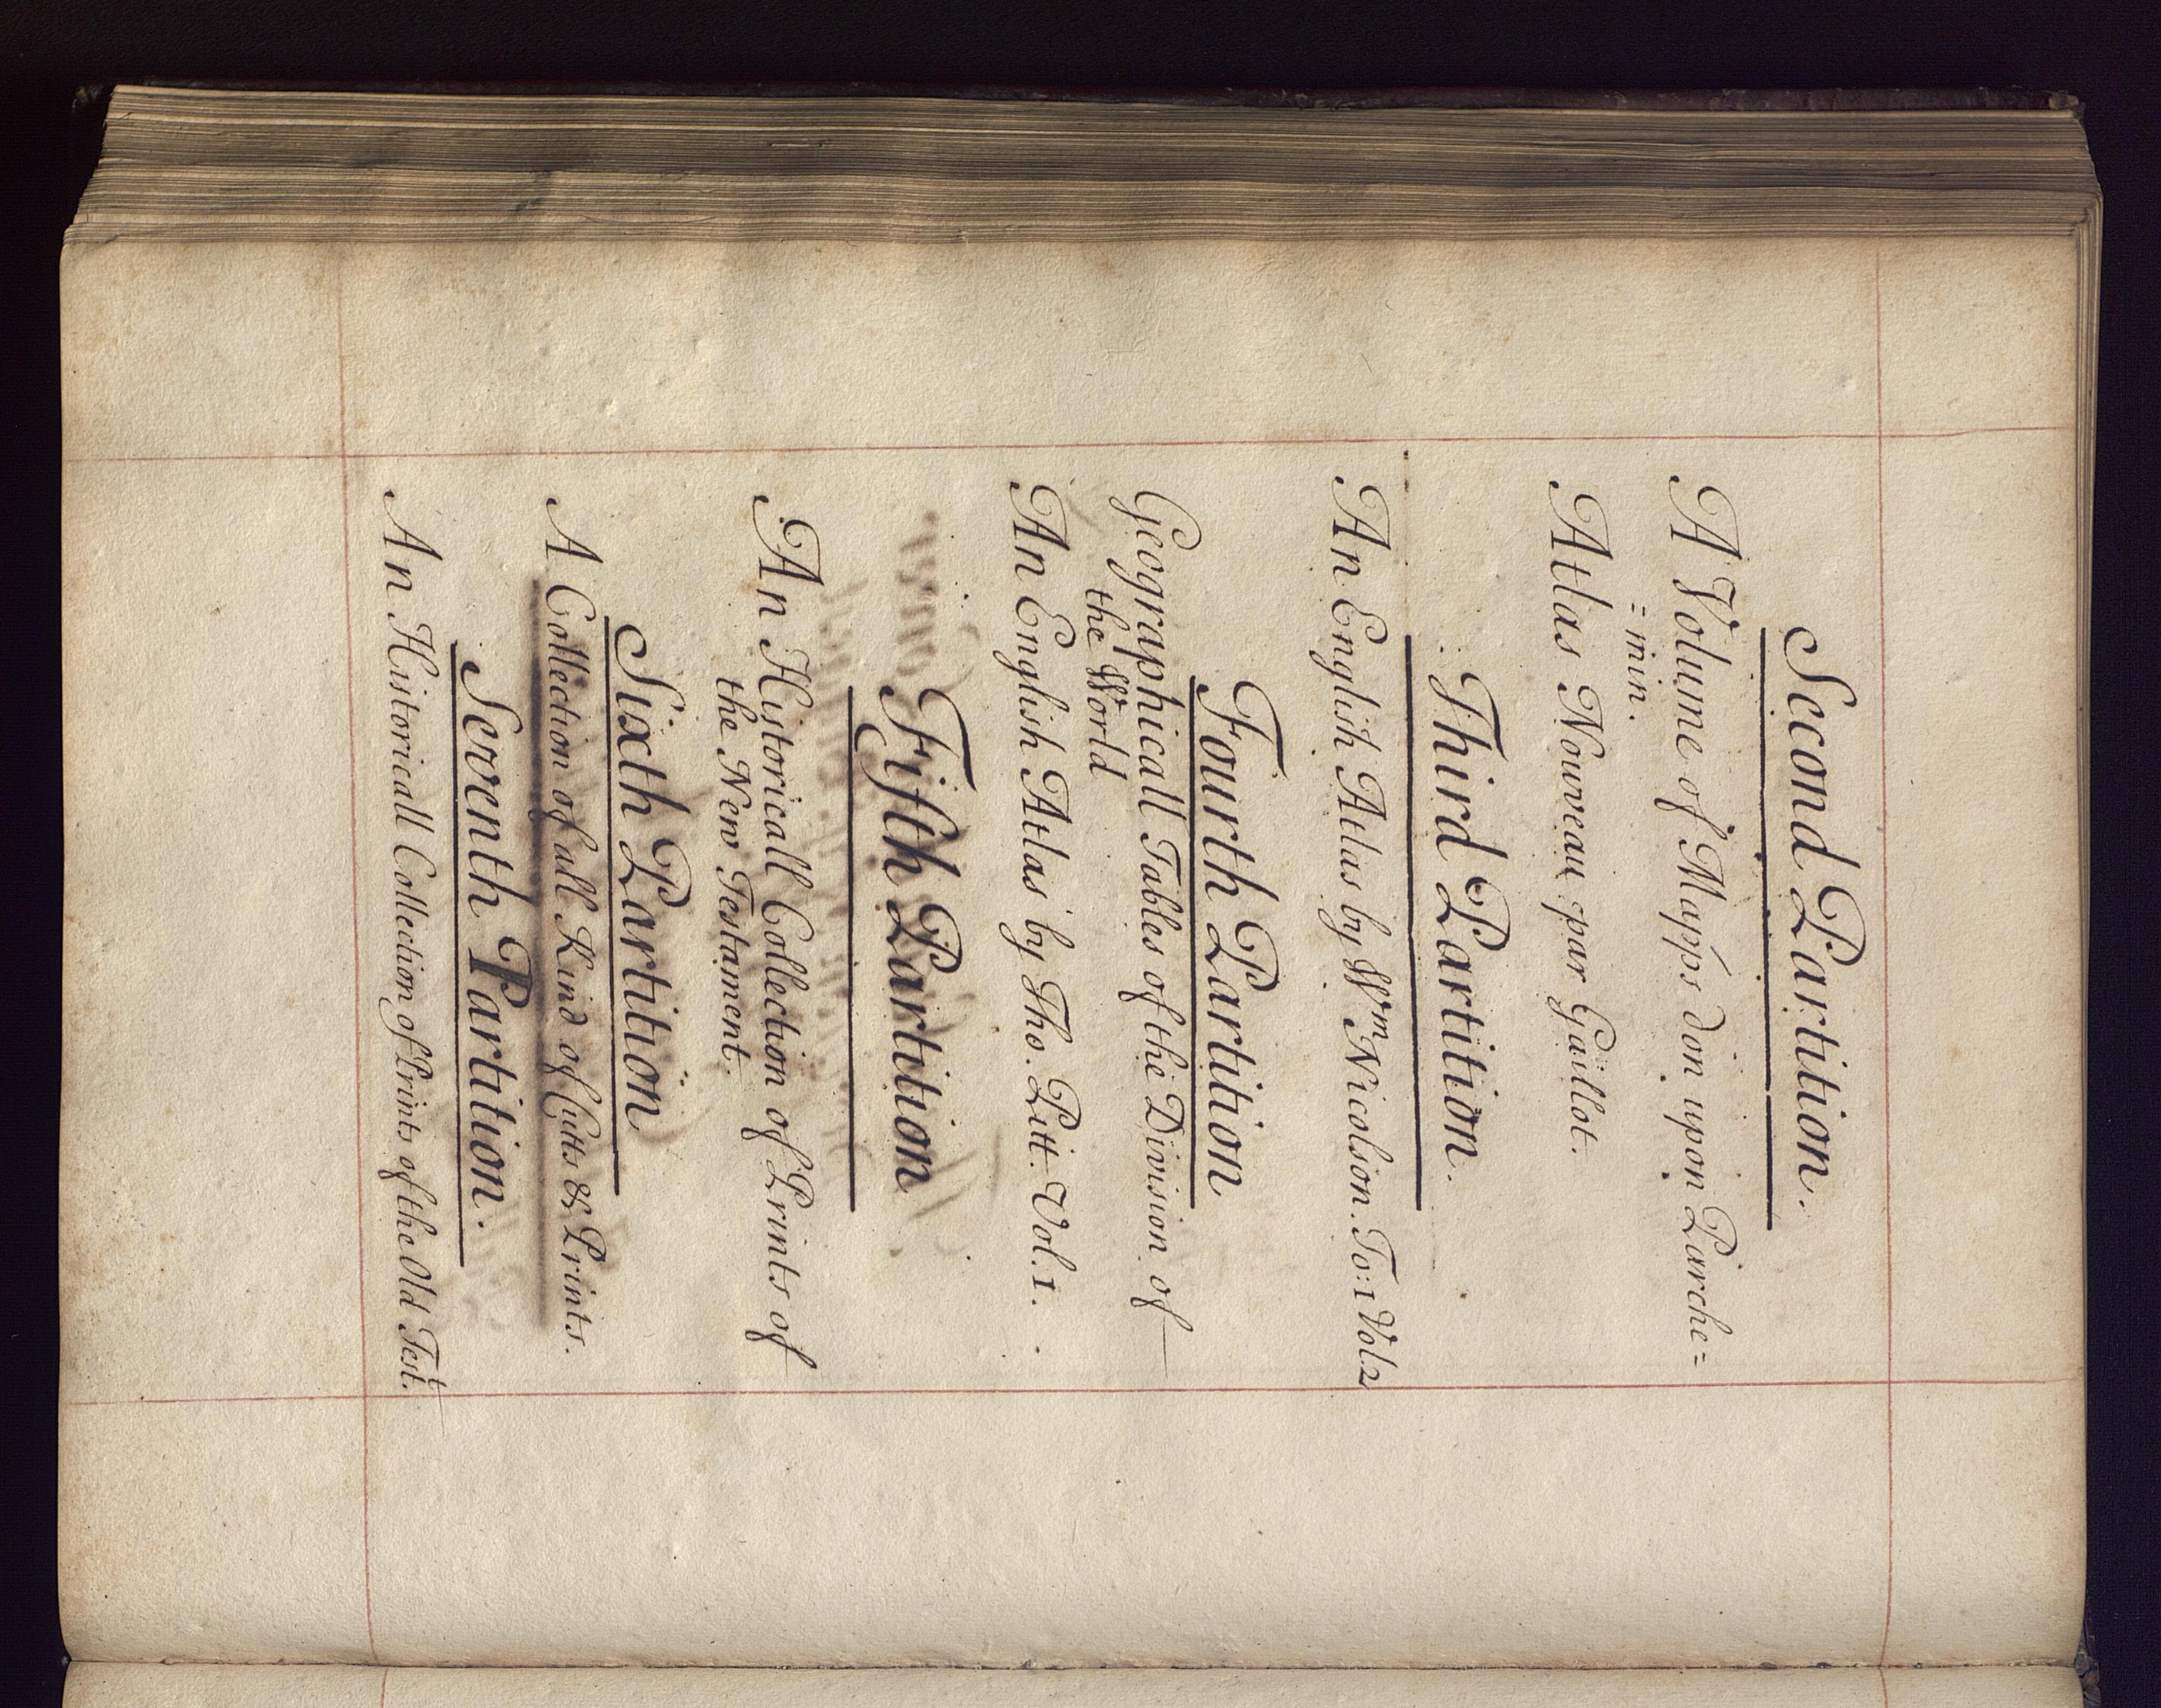 Second Partition.
A Volume of Mapps don upon Parche=
=min.
Atlas Nouveau par Gaillot.
Third Partition.
An English Atlas by Wm Nicolson. To: 1 Vol: 2
Fourth Partition
Geographicall Tables of the Division of
the World
An English Atlas by Tho. Pitt. Vol. 1.
Fifth Partition
An Historicall Collection of Prints of
the New Testament.
Sixth Partition
A Collection of all Kind of Cutts & Prints.
Sevventh Partition.
An Historicall Collection of Prints of the Old Testt.